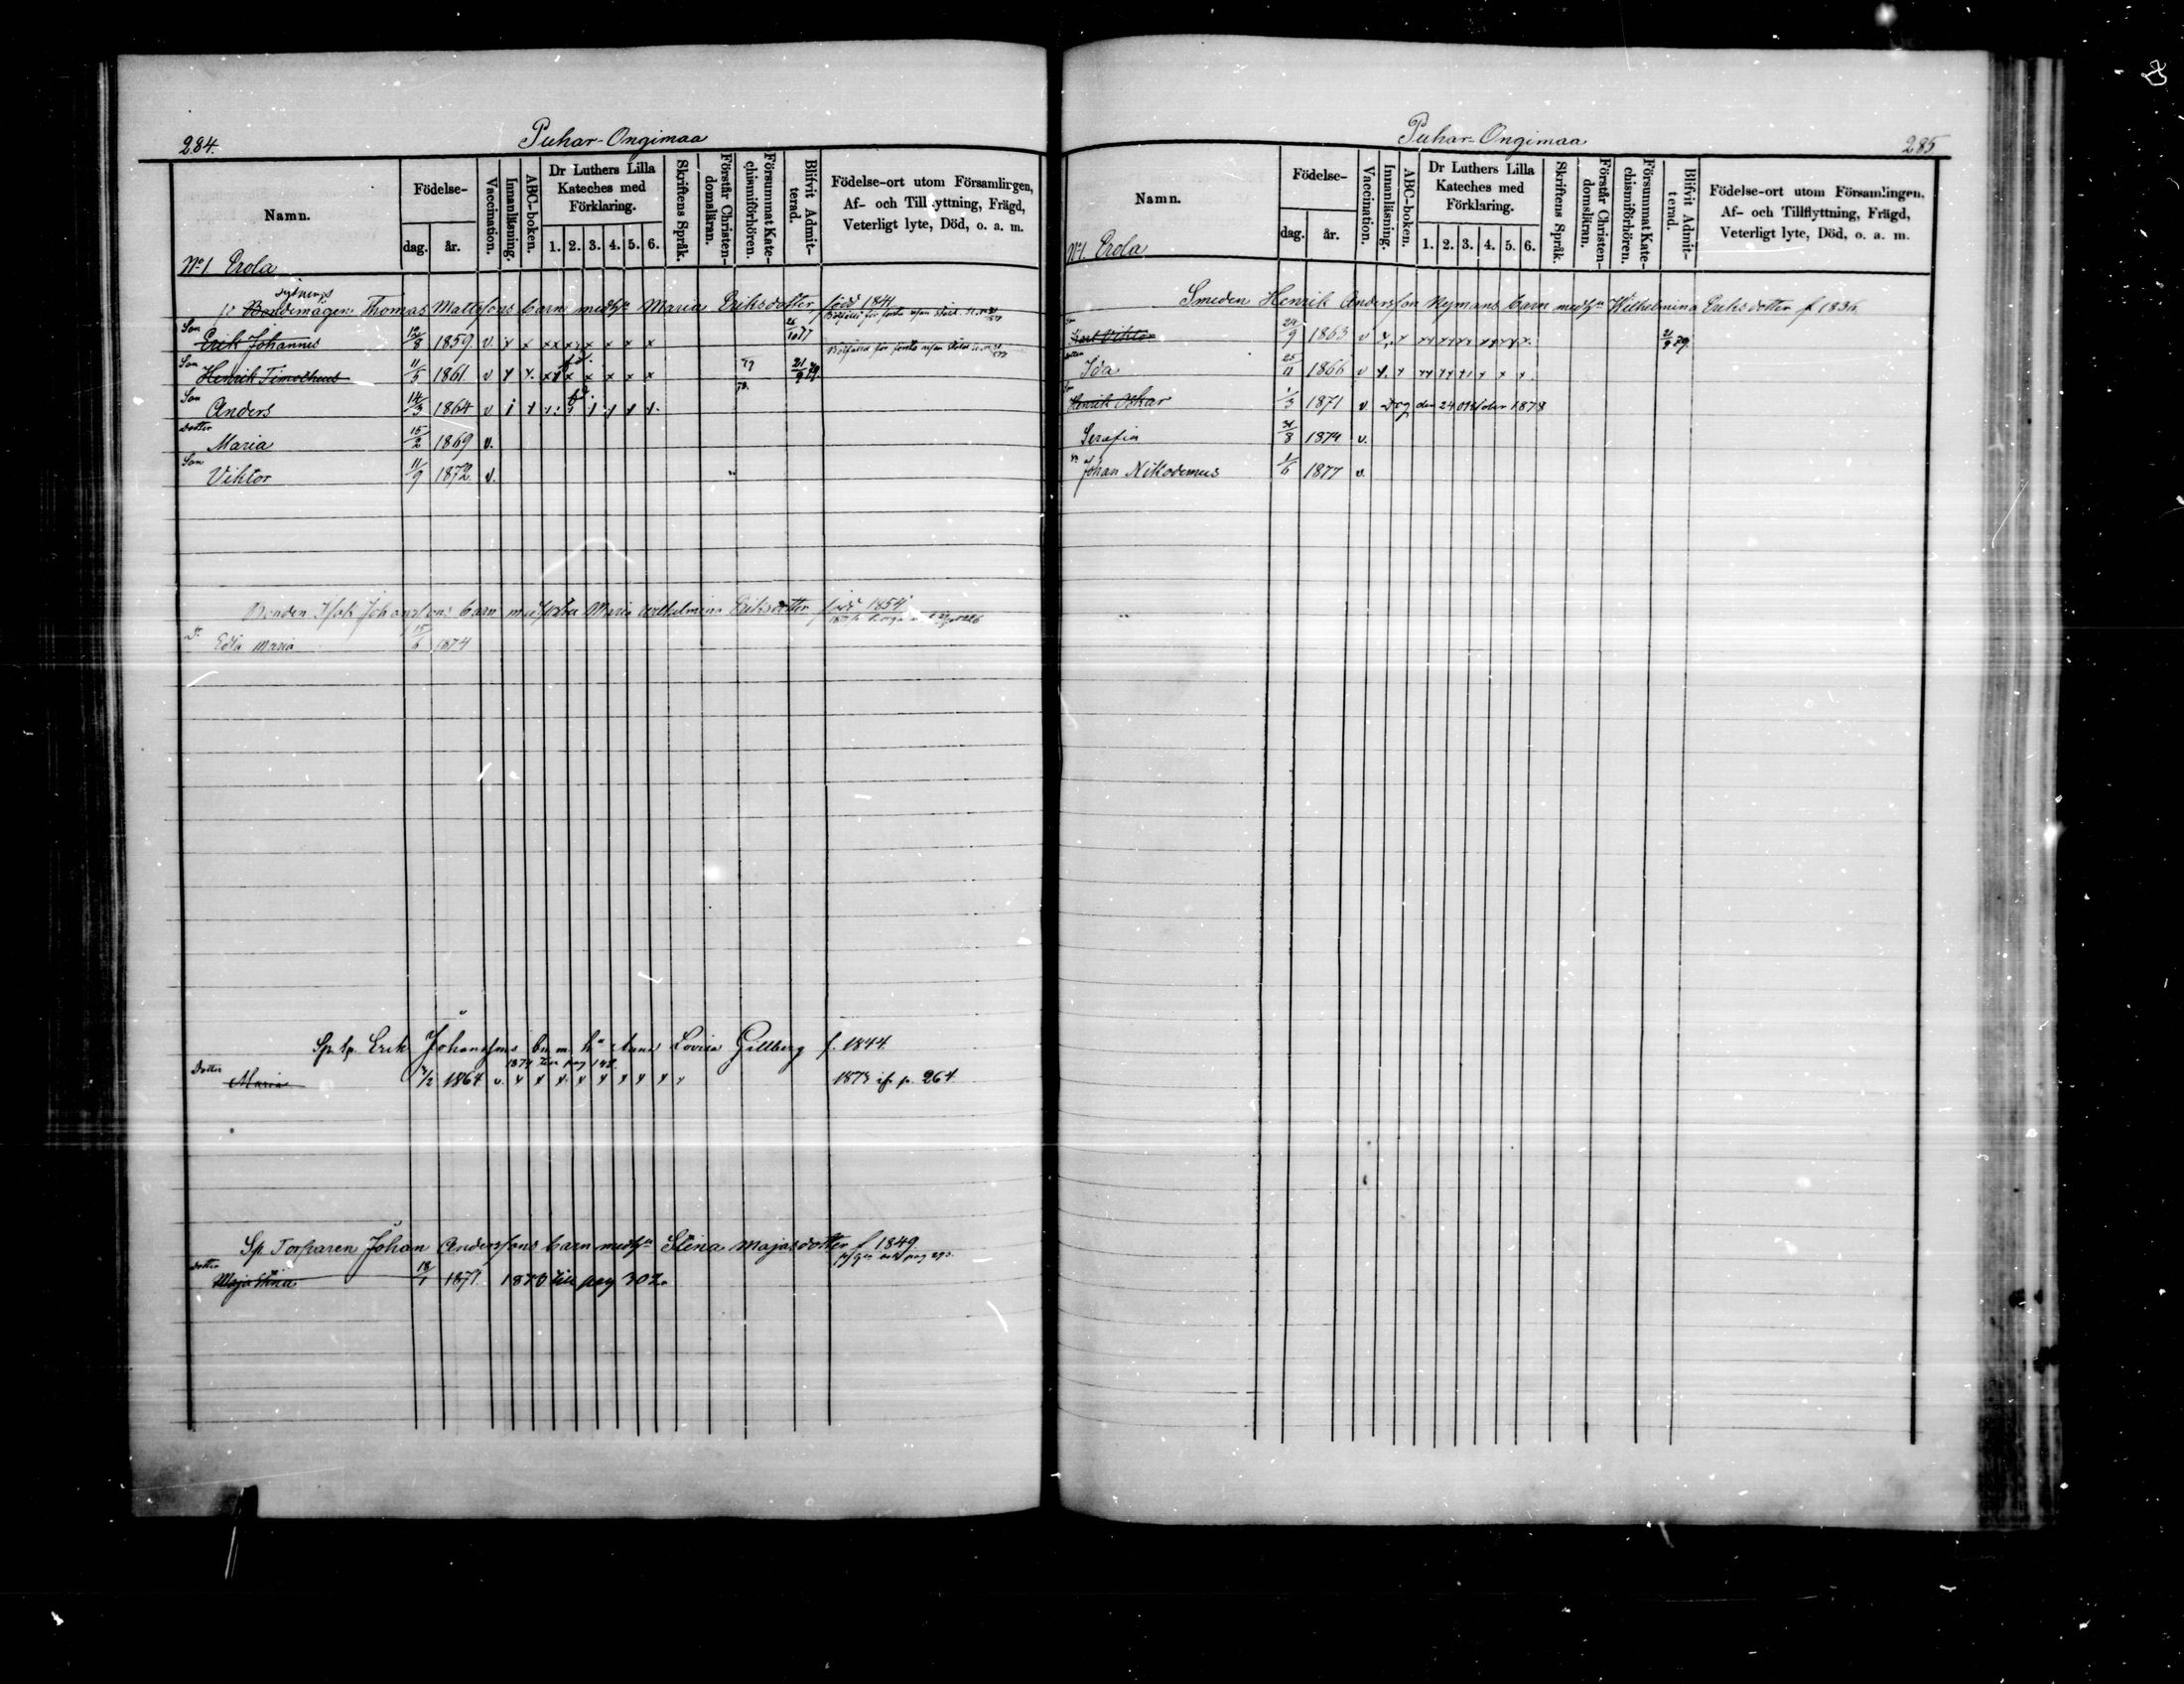 284.
Puhar-Ongimaa
Namn.
Födelse-
dag.
år.
Vaccination.
Innanläsning.
ABC-boken.
Dr Luthers Lilla
Kateches med
Förklaring.
1. 2. 3. 4. 5. 6.
Skriftens Språk.
Förstår Christen-
domsläran.
Försummat Kate-
chismiförhören.
Blifvit Admit-
terad.
Födelse-ort utom Församlingen,
Af- och Tillflyttning, Frägd,
Veterligt lyte, Död, o. a. m.
No 1. Erola
Bondemågen Thomas Mattssons barn med hu Maria Eriksdotter född 1841
Son Erik Johannes 12/8 1859 v. 26/10 77
Son Henrik Timotheus 11/5 1861 v 79 21/9 79.
Son Anders 14/3 1864 v 78.
dotter Maria 15/2 1869 v.
Son Viktor 11/9 1872 v.
Bonden Isak Johanssons barn med hustru Maria Wilhelmina Eriksdotter född 1854
Dr Edla Maria 15/6 1874
Erik Johanssons bn m. hu Anna Lovisa Gillberg f. 1844.
1874 till pag 142
Dotter Maria 2/2 1864 v. 1873 ifr p. 264.
Sp Torparen Johan Anderssons barn med hu Stina Majasdotter f 1849
dotter Maja Stina 18/1 1877. 1878 till pag 302.
Puhar-Ongimaa
285
Namn.
Födelse-
dag.
år.
Vaccination.
Innanläsning.
ABC-boken.
Dr Luthers Lilla
Kateches med
Förklaring.
1. 2. 3. 4. 5. 6.
Skriftens Språk.
Förstår Christen-
domsläran.
Försummat Kate-
chismiförhören.
Blifvit Admit-
terad.
Födelse-ort utom Församlingen,
Af- och Tillflyttning, Frägd,
Veterligt lyte, Död, o. a. m.
No 1. Erola
Smeden Henrik Andersson Nymans barn med hu Wilhelmina Eriksdotter f 1836.
Karl Viktor 29/9 1863 v 21/9 79.
dotter Ida 25/11 1866 v
Henrik Oskar 1/3 1871 v. Dog den 24 October 1878
Serafia 31/8 1874 v.
Johan Nikodemus 1/6 1877 v.